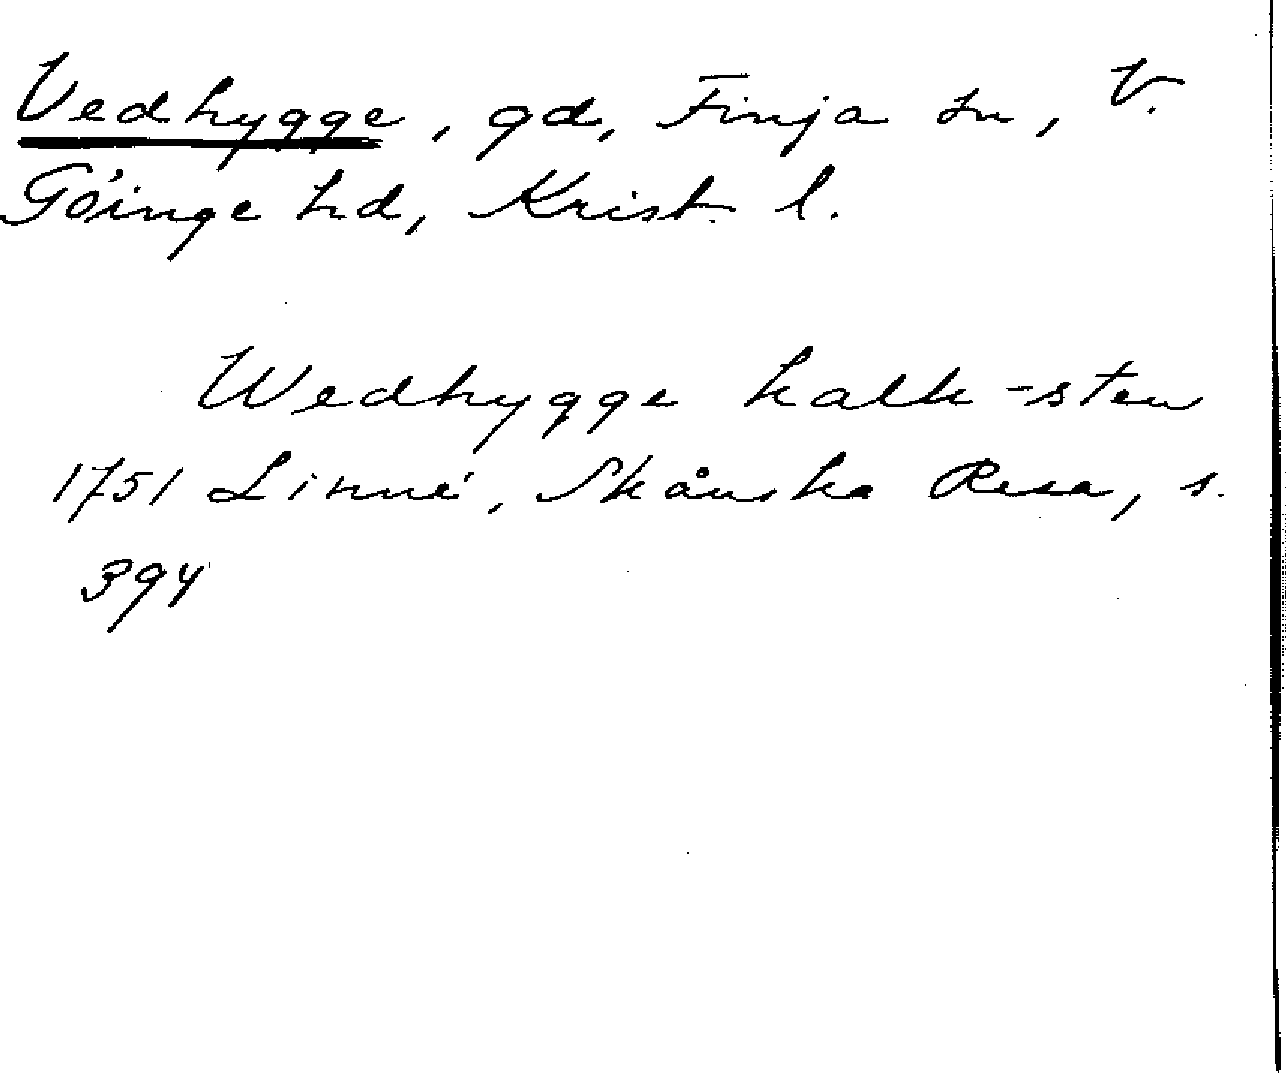 Vedhygge, gd, Finja sn, V.
Göinge hd, Krist. l.
Wedhygge kalk-sten
1751 Linné, Skånska Resa, s.
394